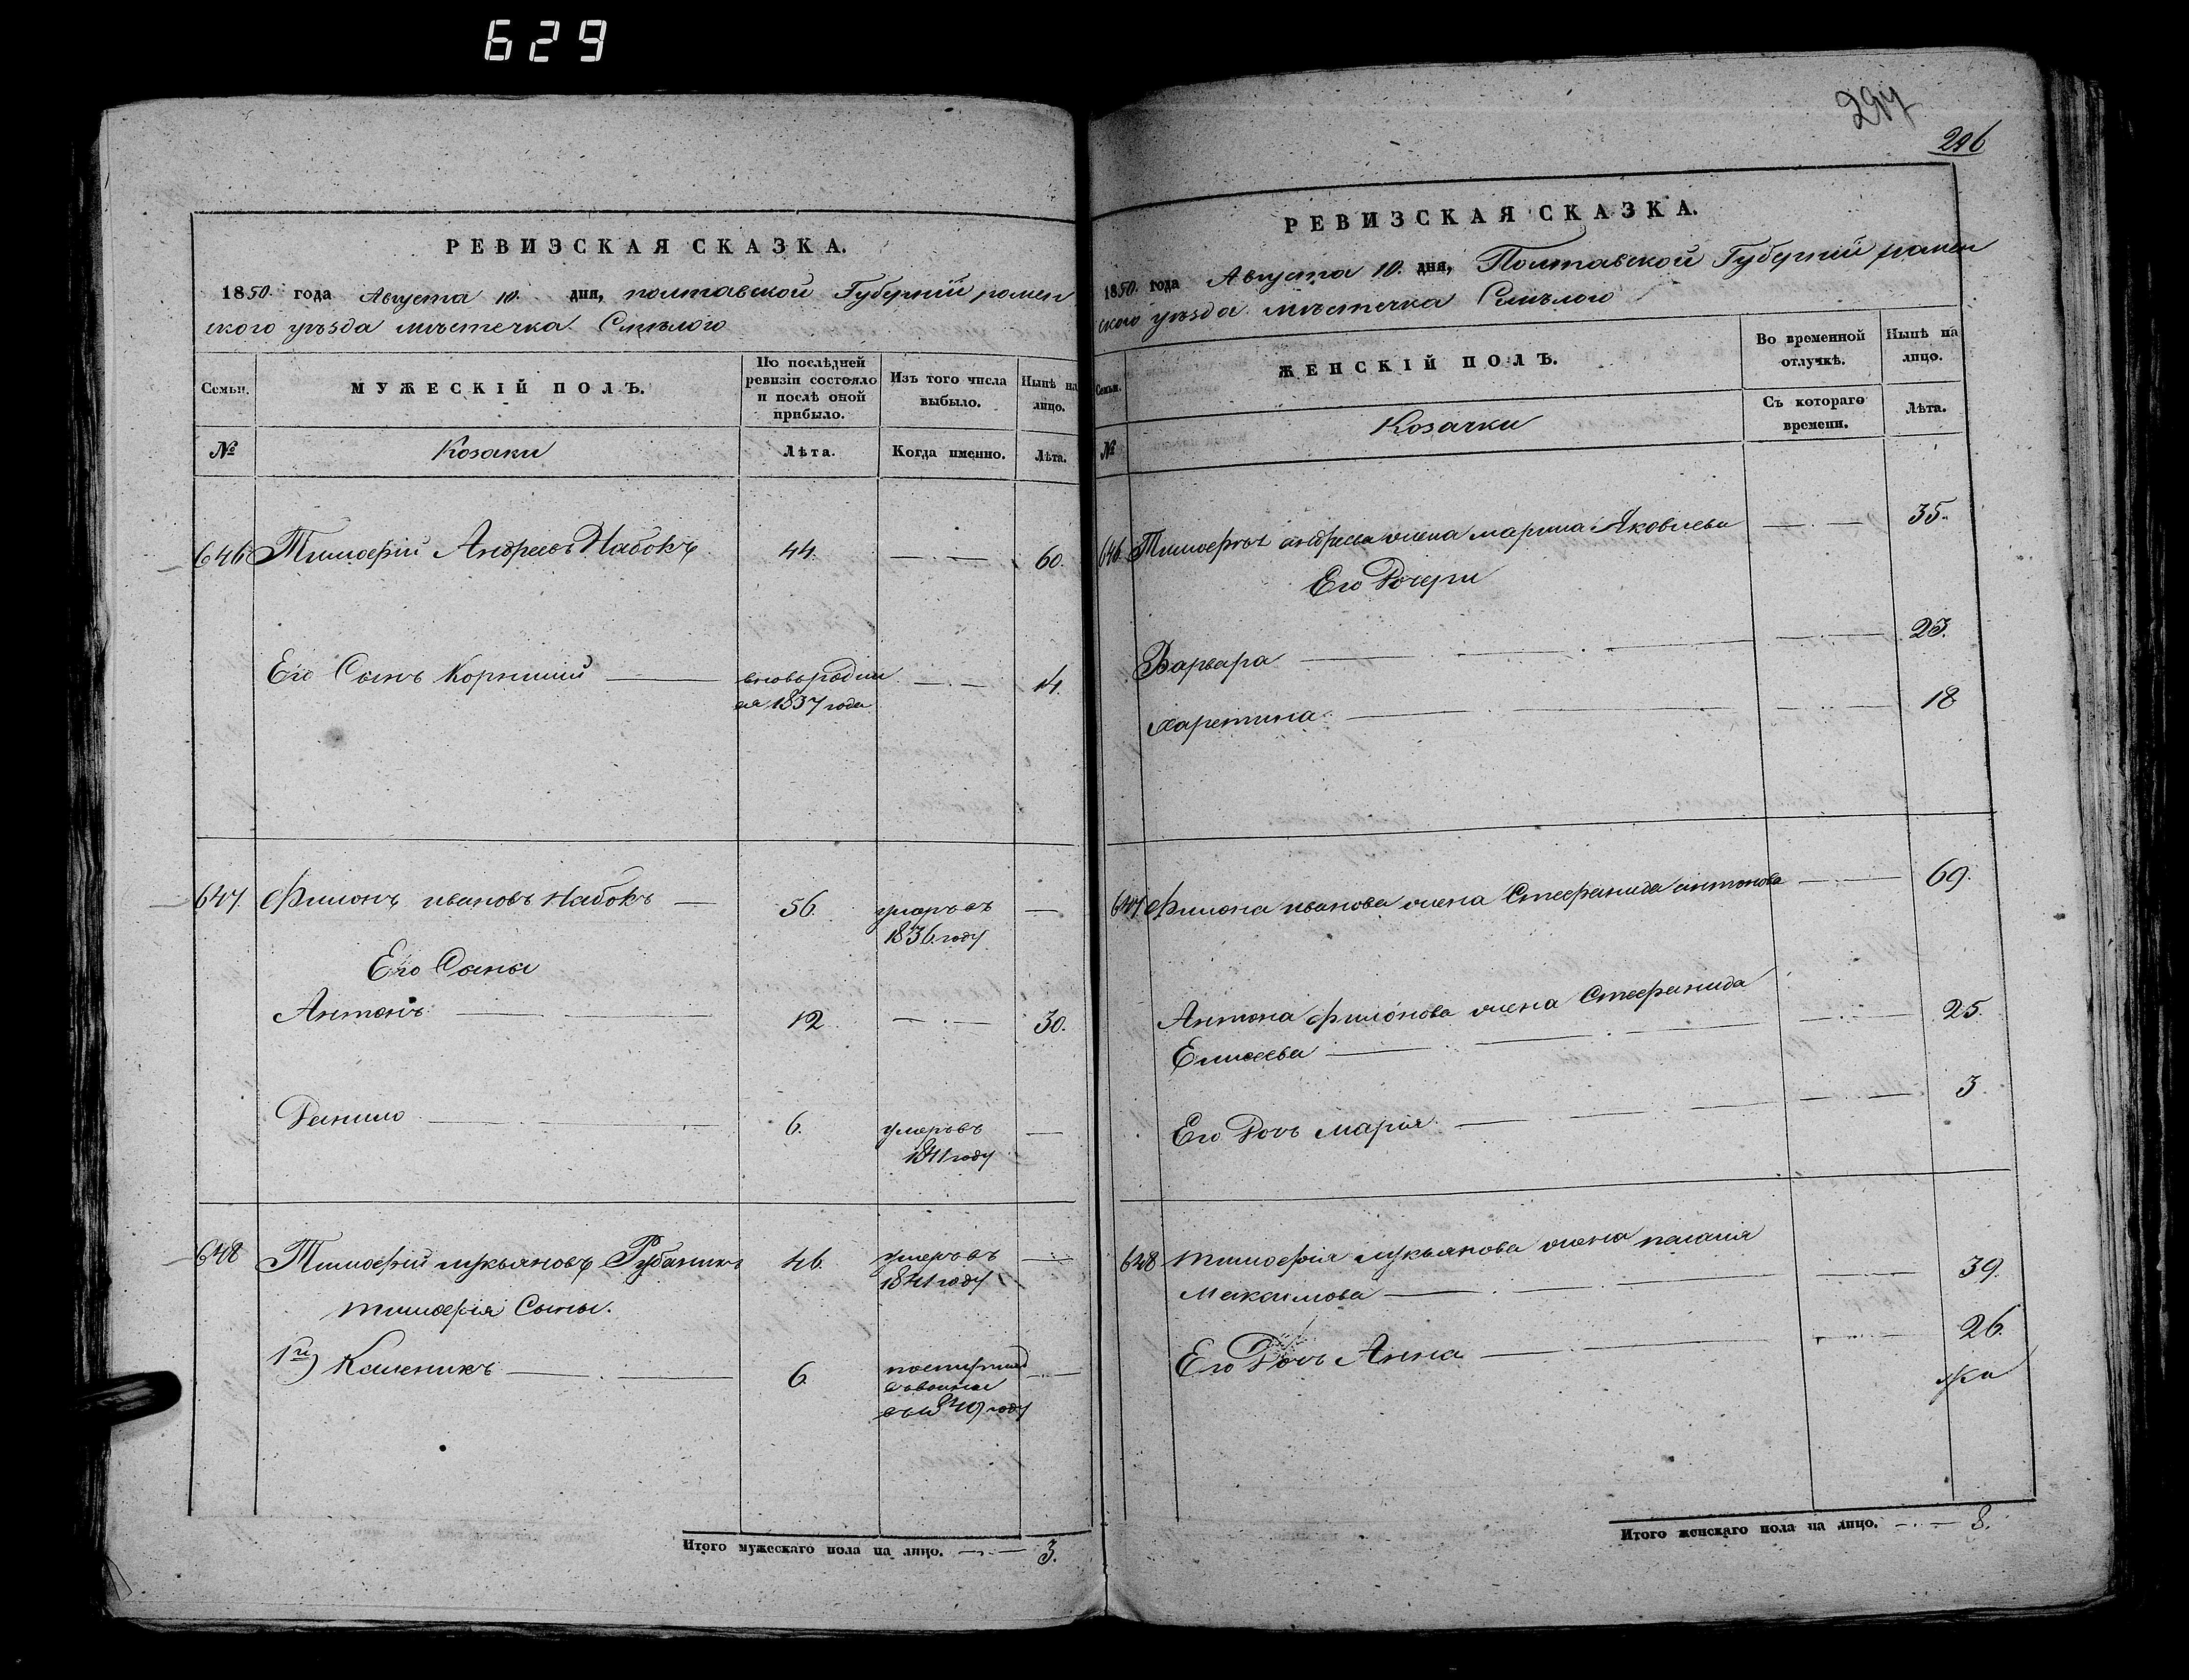 629
РЕВИЗСКАЯ СКАЗКА.
1850. года Августа 10. дня, полтавской Губерніи ромен
ского уѣзда мѣстечка Смѣлого
Семьи.
МУЖЕСКІЙ ПОЛЪ.
По послѣдней ревизіи состояло и послѣ оной прибыло.
Изъ того числа выбыло.
Нынѣ на лицо.
№
Козаки
Лѣта.
Когда именно.
Лѣта.
646 Тимофѣй Андреевъ Набокъ 44. 60.
Его Сынъ Корнилій вновь родил 14.
ся 1837 года
647. Филонъ ивановъ Набокъ 56. умеръ въ
1836. году
Его Сыны
Антонъ 12 30.
Данило 6. умеръ въ
1841 году
648 Тимофѣй лукьяновъ Рубаникъ 46. умеръ въ
1841 году
тимофѣя Сыны.
1й) Каленикъ 6.
1849 году
Итого мужескаго пола на лицо. 3.
297
296
РЕВИЗСКАЯ СКАЗКА.
1850. года Августа 10. дня, Полтавской Губерніи ромен
ского уѣзда мѣстечка Смѣлого
Семьи.
ЖЕНСКІЙ ПОЛЪ.
Во временной отлучкѣ.
Нынѣ на лицо.
Съ котораго времени.
Лѣта.
№
Козачки
646. Тимофѣя андреева жена марина Яковлева 35.
Его Дочери
Варвара 23.
харетина 18
647 филона иванова жена Стефанида антонова 69.
Антона филонова жена Стефанида
Елисеева 25.
Его Дочь марія 3
648 тимофѣя лукьянова жена пелагія
Максимова 39.
Его Дочь Анна 26.
Итого женскаго пола на лицо. 8.